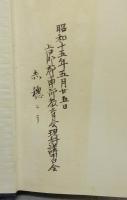 昭和十五年五月廿五日
上伊那郡中部教育会理科講習会
赤穂にて